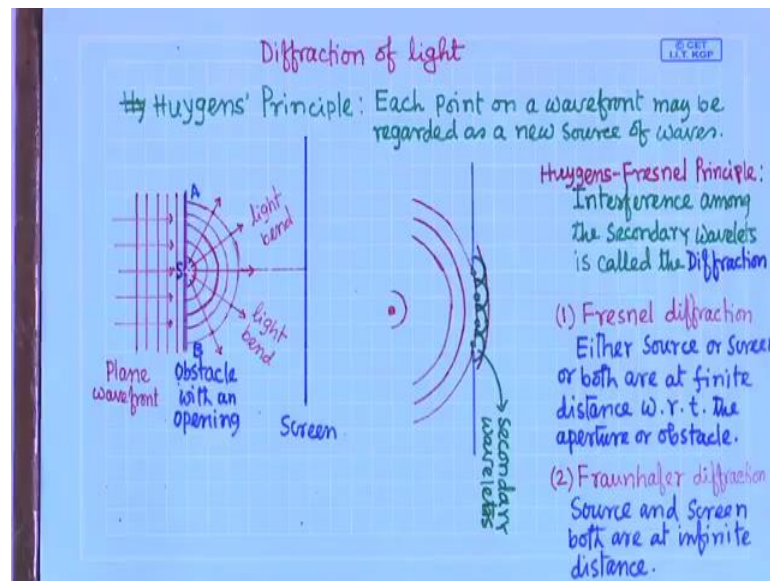 Diffraction of light
© CET
I.I.T. KGP
Hy Huygens' Principle: Each point on a wavefront may be
regarded as a new source of waves.
A
S
B
light
bend
light
bend
Plane
wavefront
Obstacle
with an
opening
Screen
Secondary
wavelets
Huygens-Fresnel Principle:
Interference among
the Secondary Wavelets
is called the Diffraction
(1) Fresnel diffraction
Either Source or Screen
or both are at finite
distance w.r.t. the
aperture or obstacle.
(2) Fraunhafer diffraction
Source and Screen
both are at infinite
distance.